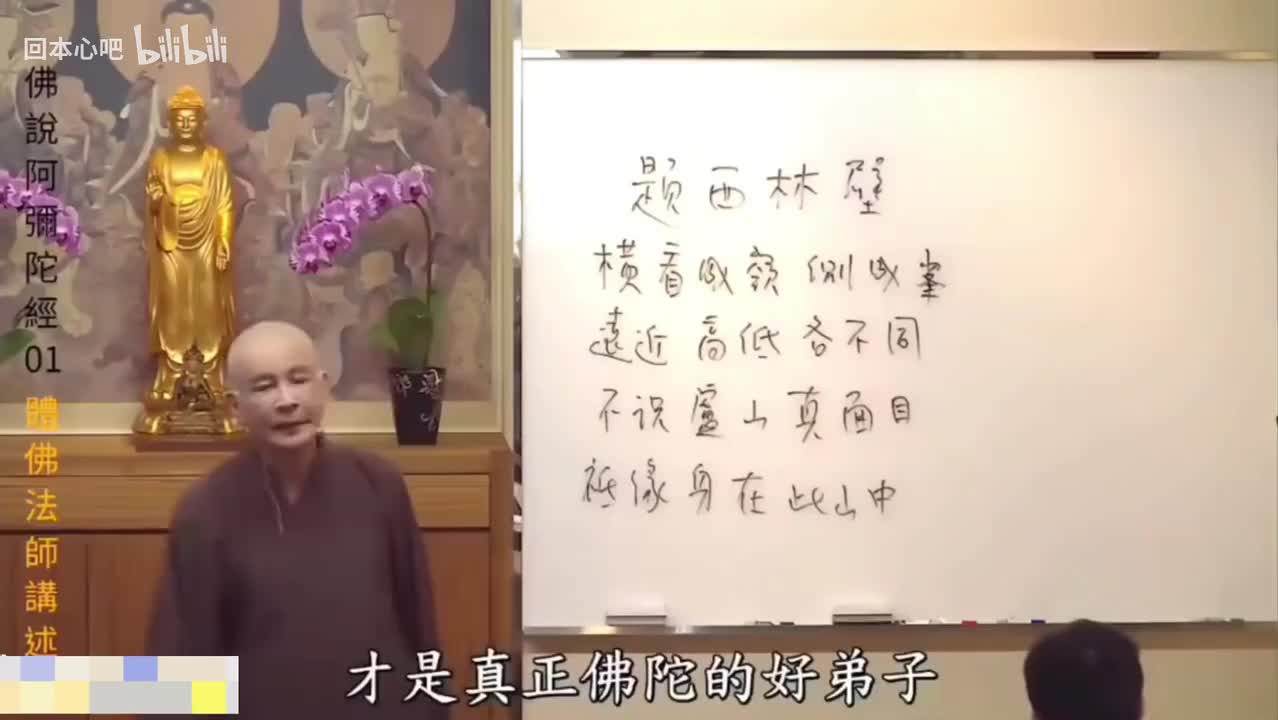 回本心吧 bilibili
佛說阿彌陀經01 體佛法師講述
題西林壁
橫看成嶺側成峯
遠近高低各不同
不识廬山真面目
祗緣身在此山中
才是真正佛陀的好弟子